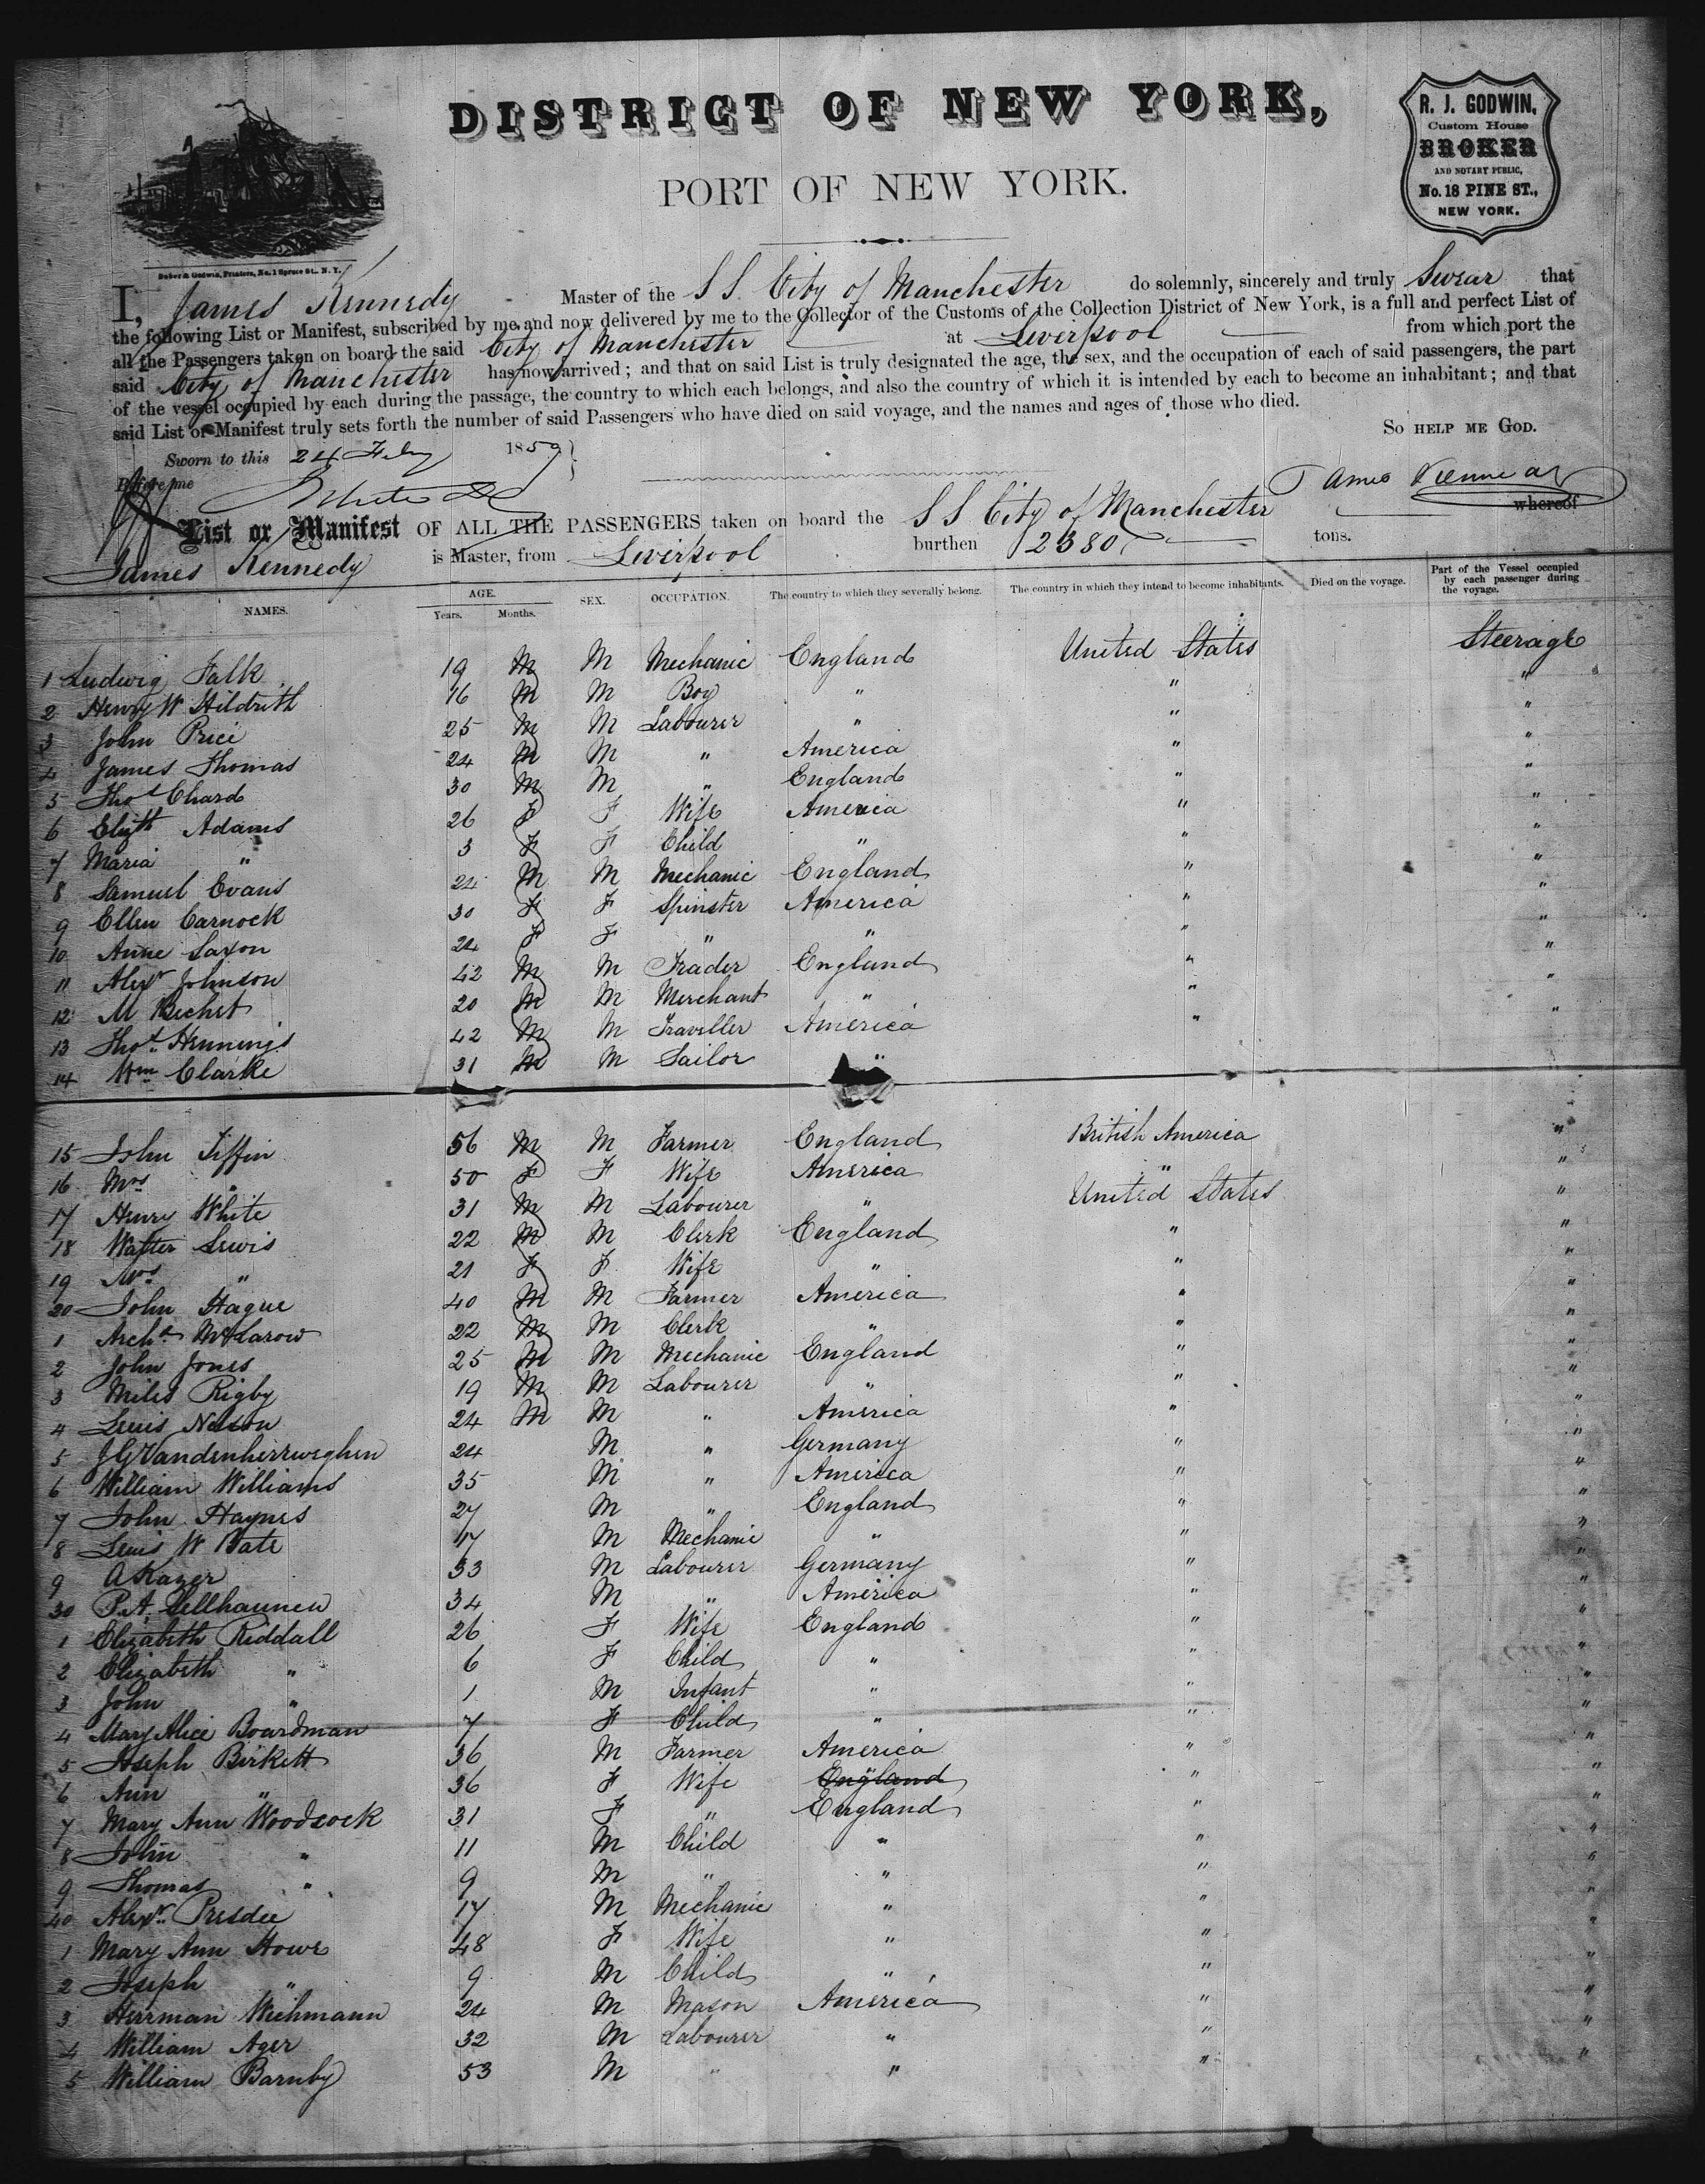 DISTRICT OF NEW YORK,
PORT OF NEW YORK.
R. J. GODWIN,
Custom House
BROKER
AND NOTARY PUBLIC,
No. 18 PINE ST.,
NEW YORK.
Baker & Godwin, Printers, No. 1 Spruce St., N. Y.
I, James Kennedy Master of the S S. City of Manchester do solemnly, sincerely and truly Swear that
the following List or Manifest, subscribed by me and now delivered by me to the Collector of the Customs of the Collection District of New York, is a full and perfect List of
all the Passengers taken on board the said City of Manchester at Liverpool from which port the
said City of Manchester has now arrived; and that on said List is truly designated the age, the sex, and the occupation of each of said passengers, the part
of the vessel occupied by each during the passage, the country to which each belongs, and also the country of which it is intended by each to become an inhabitant; and that
said List or Manifest truly sets forth the number of said Passengers who have died on said voyage, and the names and ages of those who died.
SO HELP ME GOD.
Sworn to this 24 Feby 1859
Before me
James Kennedy
List or Manifest OF ALL THE PASSENGERS taken on board the S S City of Manchester whereof
James Kennedy is Master, from Liverpool burthen 2380 tons.
NAMES. AGE. Years. Months. SEX. OCCUPATION. The country to which they severally belong. The country in which they intend to become inhabitants. Died on the voyage. Part of the Vessel occupied by each passenger during the voyage.
1 Ludwig Falk 19 M M Mechanic England United States Steerage
2 Henry W Hildrith 16 M M Boy " " "
3 John Price 25 M M Labourer " " "
4 James Thomas 24 M M " America " "
5 Thos Chard 30 M M " England " "
6 Elizth Adams 26 F F Wife America " "
7 Maria " 3 F F Child " " "
8 Samuel Evans 24 M M Mechanic England " "
9 Ellen Carnock 30 F F Spinster America " "
10 Anne Saxon 24 F F " " " "
11 Alexr Johnson 42 M M Trader England " "
12 M Bechet 20 M M Merchant " " "
13 Thos Hennings 42 M M Traveller America " "
14 Wm Clarke 31 M M Sailor "
15 John Tiffin 56 M M Farmer England British America "
16 Mrs " 50 F F Wife America " "
17 Henry White 31 M M Labourer " United States "
18 Walter Lewis 22 M M Clerk England " "
19 Mrs " 21 F F Wife " " "
20 John Hague 40 M M Farmer America " "
1 Archd McLarow 22 M M Clerk " " "
2 John Jones 25 M M Mechanic England " "
3 Miles Rigby 19 M M Labourer " " "
4 Lewis Nelson 24 M M " America " "
5 J G Vandenherrweghen 24 M " Germany " "
6 William Williams 35 M " America " "
7 John Haynes 27 M " England " "
8 Lewis W Bate 17 M Mechanic " " "
9 A Kazer 33 M Labourer Germany " "
30 P. A. 34 M " America " "
1 Elizabeth Riddall 26 F Wife England " "
2 Elizabeth " 6 F Child " " "
3 John " 1 M Infant " " "
4 Mary Alice Boardman 7 F Child " " "
5 Joseph Birkett 36 M Farmer America " "
6 Ann " 36 F Wife England " "
7 Mary Ann Woodcock 31 F " England " "
8 John " 11 M Child " " "
9 Thomas " 9 M " " " "
40 Alexr Presdee 17 M Mechanic " " "
1 Mary Ann Howe 48 F Wife " " "
2 Joseph " 9 M Child " " "
3 Herrman Wichmann 24 M Mason America " "
4 William Ager 32 M Labourer " " "
5 William Barnby 53 M " " " "